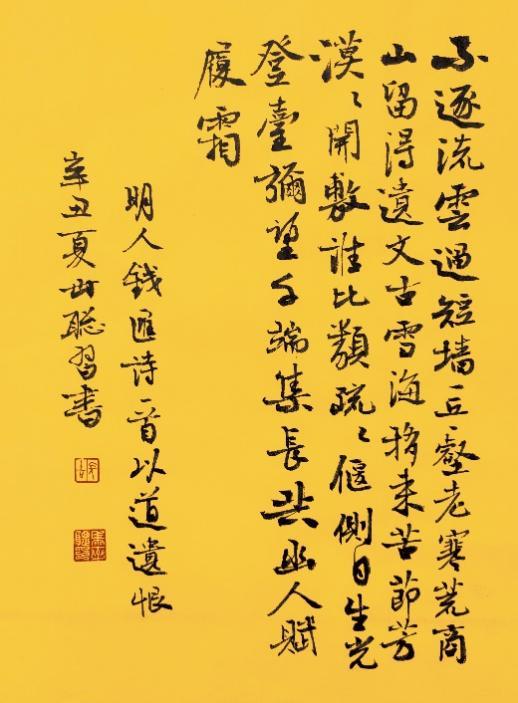 不逐流雲過短墻丘壑老寒荒商
山留得遺文古雪海移来苦節芳
漠〻開敷誰比類疏〻偃側自生光
登臺彌望千端集長共幽人賦
履霜
明人錢匯詩一首以道遺恨
辛丑夏世聪習書